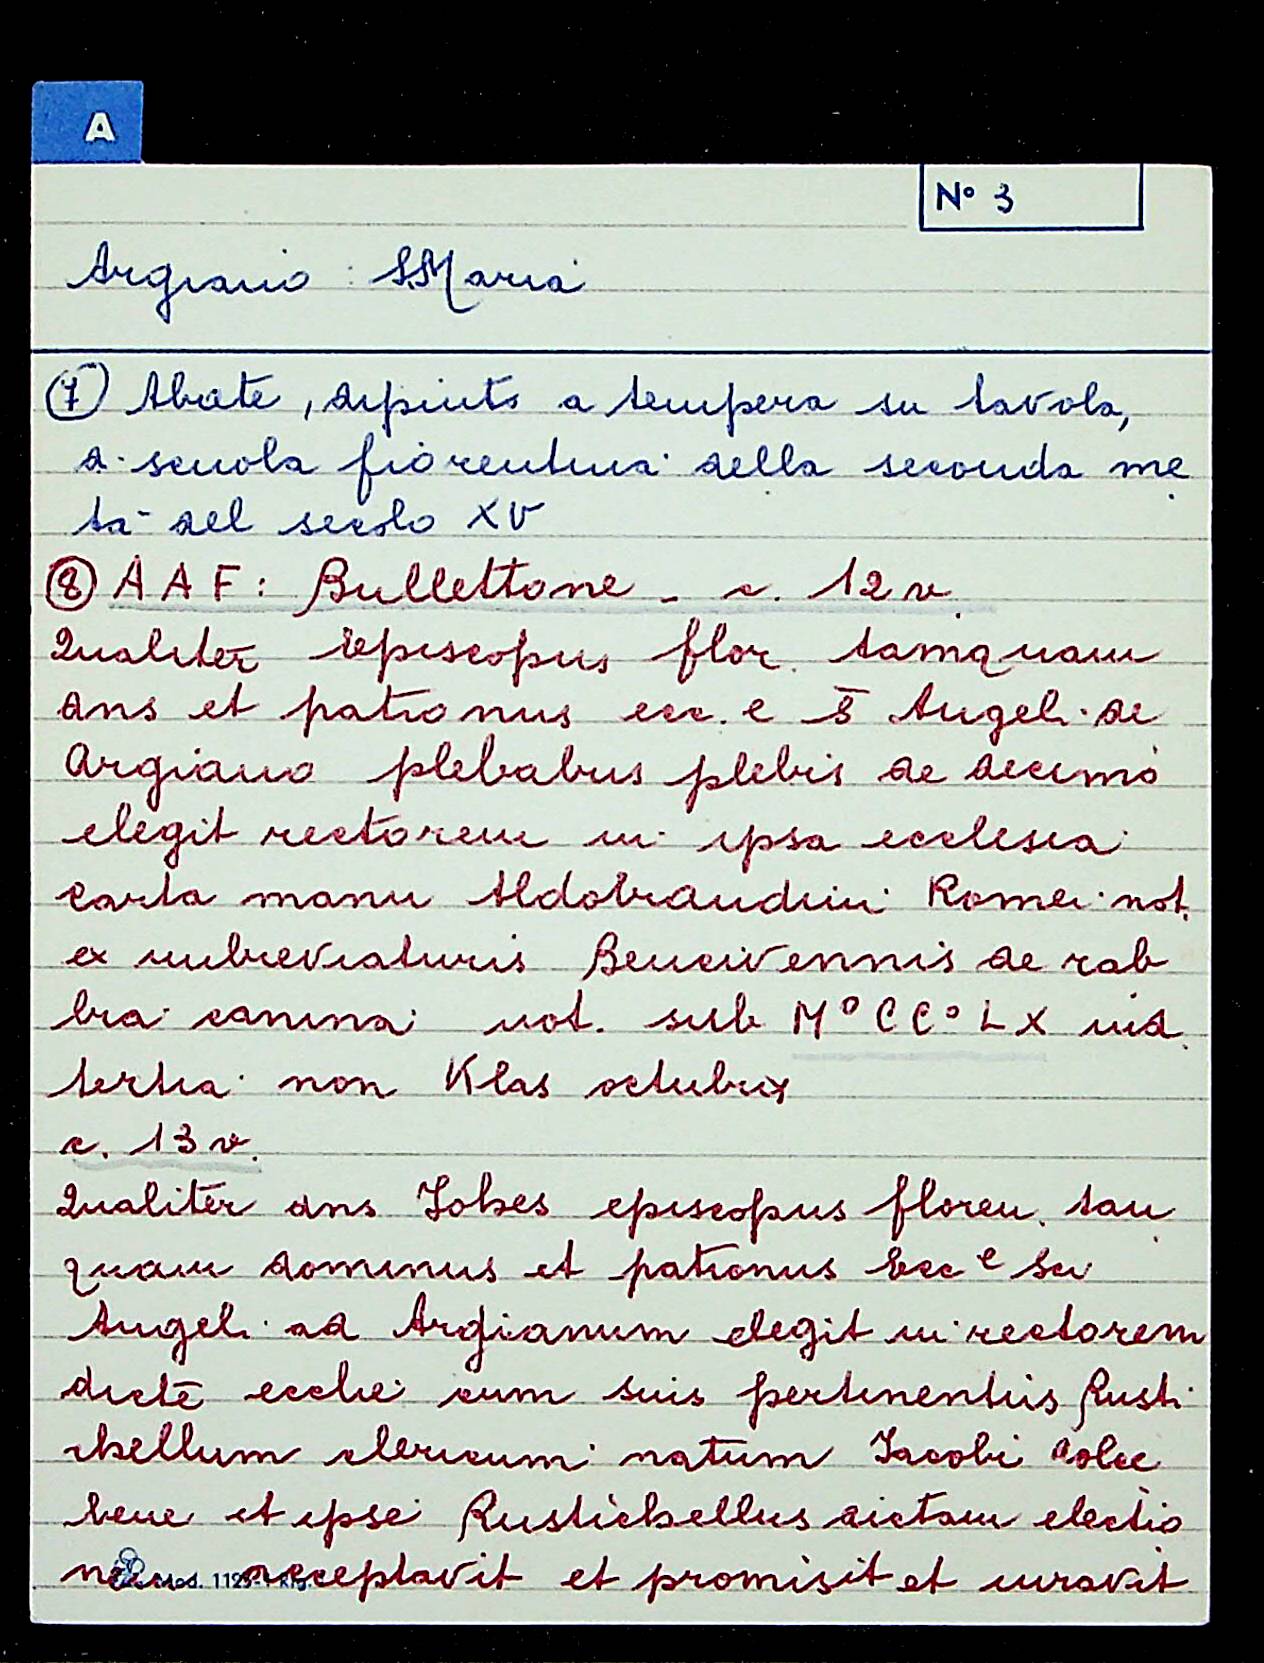 A
N° 3
Argiano : S. Maria
⑦ Abate, dipinto a tempera su tavola,
di scuola fiorentina della seconda me
tà del secolo XV
⑧ A A F : Bullettone - c. 12 v.
Qualiter Episcopus flor. tamquam
dns et patronus ecc. e S̄ Angeli de
Argiano plebatus plebis de decimo
elegit rectorem in ipsa ecclesia
carta manu Aldobrandini Romei not.
ex imbreviaturis Bencivennis de rab
bia canina not. sub M° CC° LX ind.
tertia non Klas octubris
c. 13 v.
Qualiter dns Johes episcopus floren. tan
quam dominus et patronus Ecc e Sci
Angeli ad Argianum elegit in rectorem
dictē ecclie cum suis pertinentiis Rusti
chellum clericum natum Jacobi dolce
bene et ipse Rustichellus dictam electio
nem acceptavit et promisit et iuravit